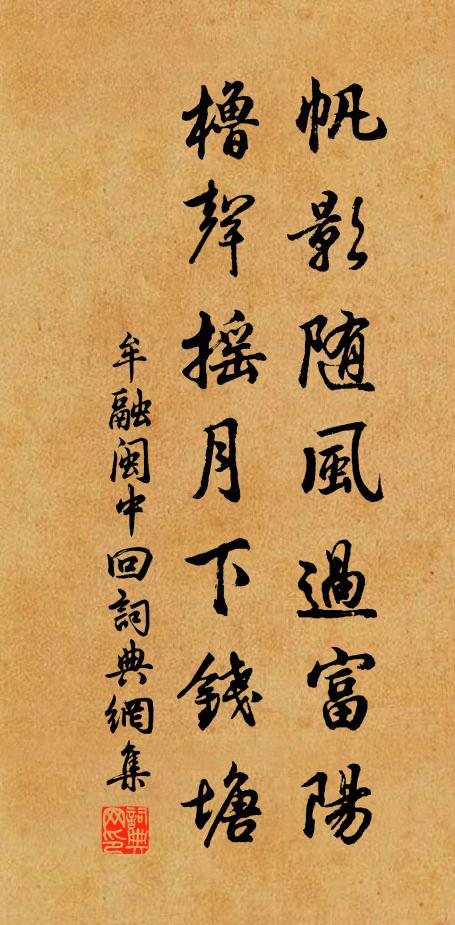 帆影随風過富陽
櫓聲摇月下錢塘
牟融閩中回詞典網集
詞典網印